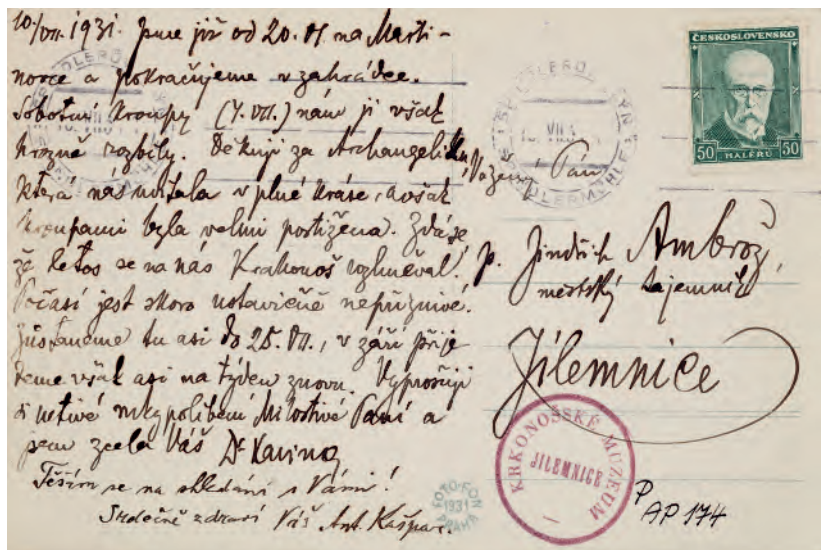 10./VII. 1931. Jsme již od 20. VI. na Marti-
novce a pokračujeme v zahrádce.
Sobotní kroupy (4. VII.) nám ji však
hrozně rozbily. Děkuji za Archangeliku,
která nás uvítala v plné kráse, avšak
kroupami byla velmi postižena. Zdá se,
že letos se na nás Krakonoš rozhněval.
Počasí jest skoro ustavičně nepříznivé.
Zůstaneme tu asi do 25. VII., v září přije
deme však asi na týden znovu. Vyprošuji
si uctivé rukypolíbení Milostivé Paní a
jsem zcela Váš Dr Kavina
Těším se na shledání s Vámi!
Srdečně zdraví Váš Ant. Kašpar.
ČESKOSLOVENSKO
50 HALÉŘŮ 50
VII. 31
Vážený Pán
p. Jindřich Ambrož,
městský tajemník
Jilemnice
KRKONOŠSKÉ MUZEUM
JILEMNICE
FOTO-FON
1931
PRAHA
P
AP 174